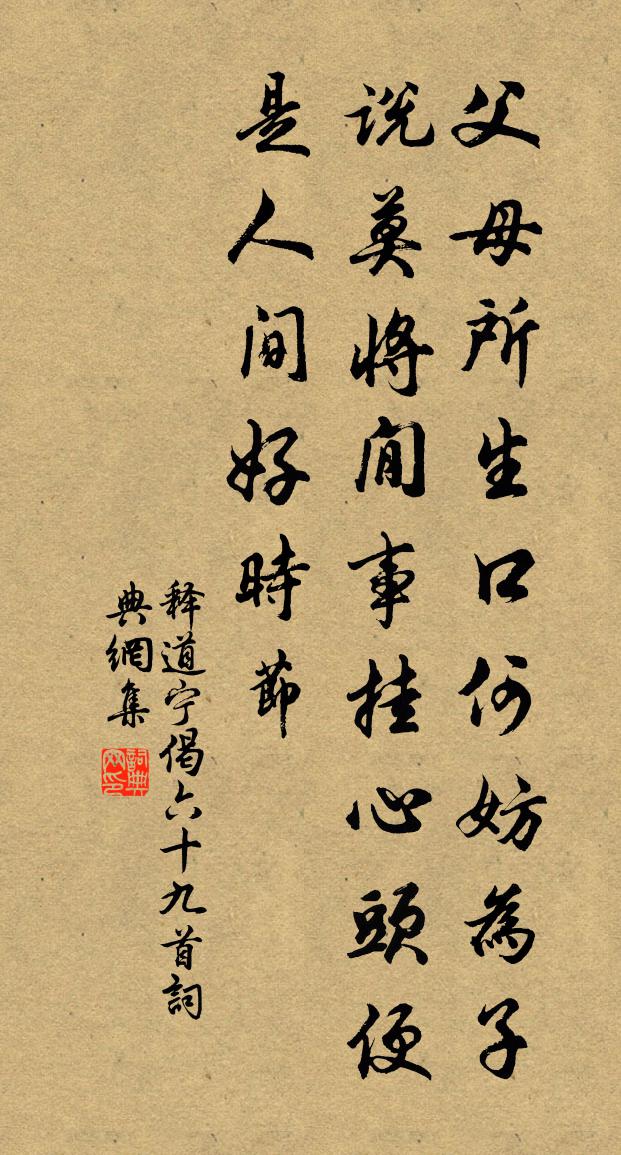 父母所生口何妨為子
説莫將閒事挂心頭便
是人间好時節
释道宁偈六十九首詞
典網集
詞典网印